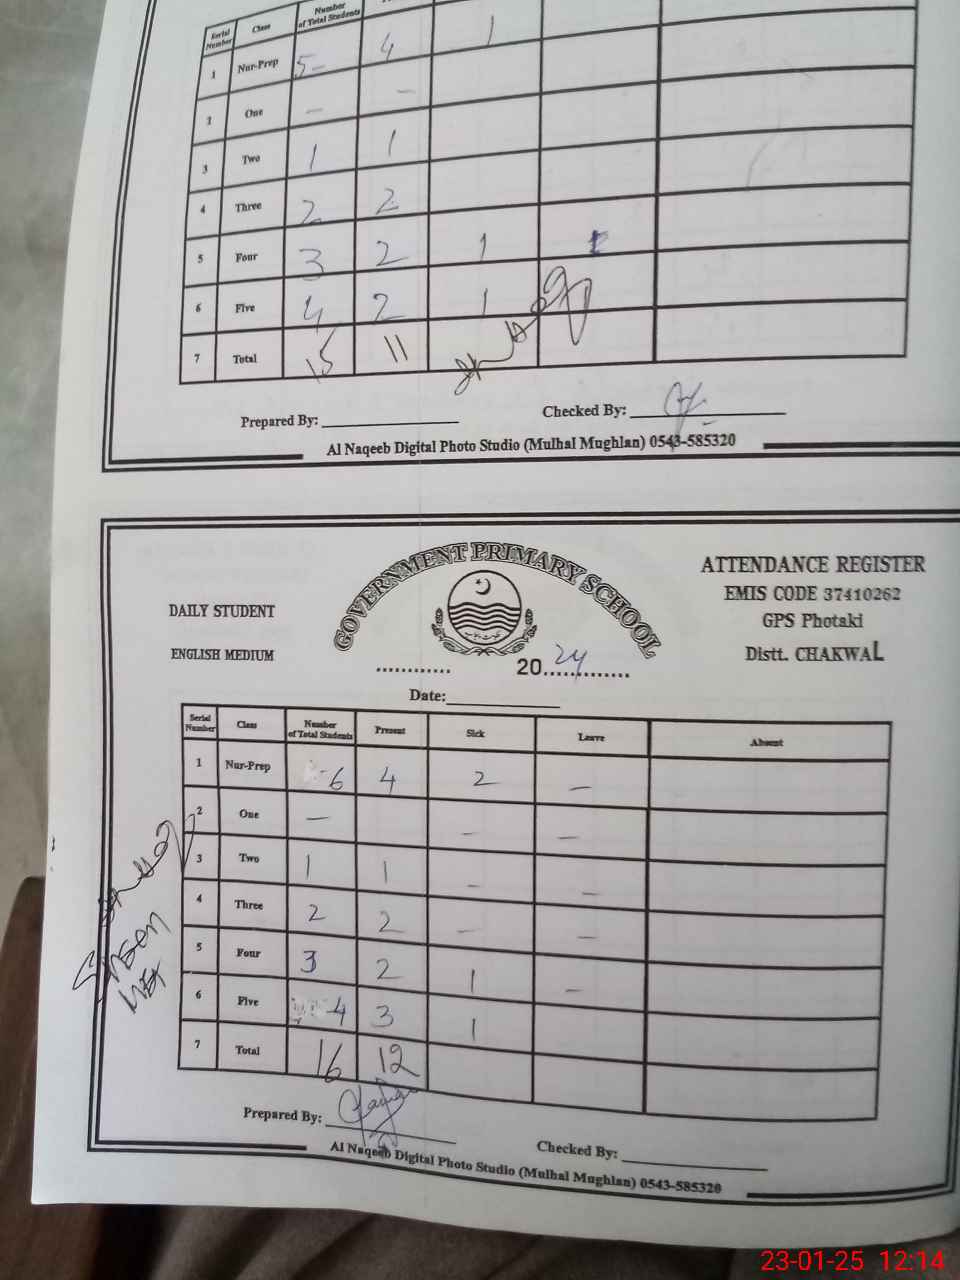 Serial Number Class Number of Total Students
1 Nur-Prep 5- 4 1
2 One - -
3 Two 1 1
4 Three 2 2
5 Four 3 2 1
6 Five 4 2 1
7 Total 15 11
Prepared By: Checked By:
Al Naqeeb Digital Photo Studio (Mulhal Mughlan) 0543-585320
GOVERNMENT PRIMARY SCHOOL
ATTENDANCE REGISTER
EMIS CODE 37410262
DAILY STUDENT
GPS Photaki
ENGLISH MEDIUM
Distt. CHAKWAL
............ 20 24 .............
Date:
Serial Number Class Number of Total Students Present Sick Leave Absent
1 Nur-Prep 6 4 2 -
2 One - - -
3 Two 1 1 - -
4 Three 2 2 - -
5 Four 3 2 1 -
6 Five 4 3 1
7 Total 16 12
Prepared By:
Checked By:
Al Naqeeb Digital Photo Studio (Mulhal Mughlan) 0543-585320
23-01-25 12:14